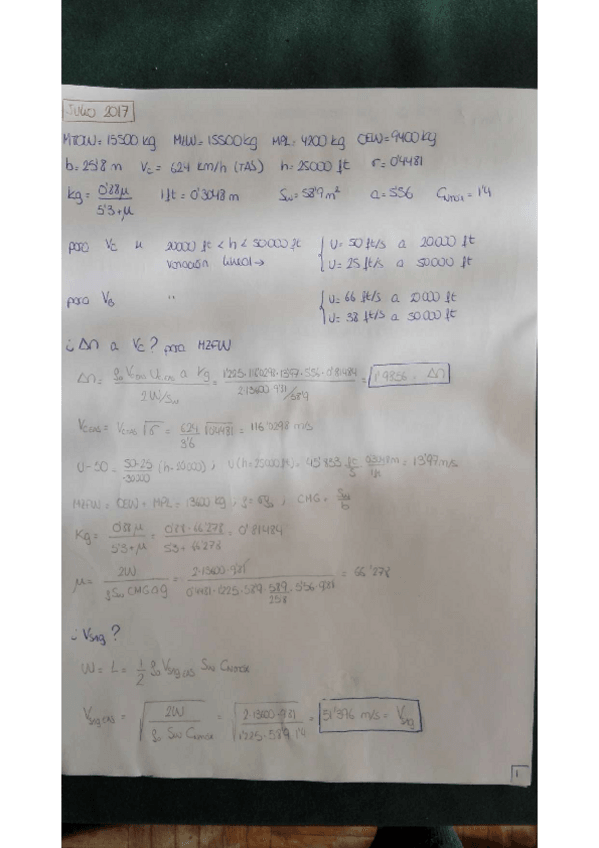 JULIO 2017
MTOW = 15500 kg MLW = 15500 kg MPL = 4200 kg OEW = 9400 kg
b = 25'8 m Vc = 624 km/h (TAS) h = 25000 ft σ = 0'4481
kg = 0'88μ / 5'3+μ 1 ft = 0'3048 m Sw = 58'9 m² a = 5'56 CLmax = 1'4
para Vc μ 20000 ft < h < 50000 ft { U = 50 ft/s a 20000 ft
variación lineal → U = 25 ft/s a 50000 ft
para VB " { U = 66 ft/s a 20000 ft
U = 38 ft/s a 50000 ft
¿Δn a Vc? para MZFW
Δn = ρ0 Vcas Ucas a Kg / 2W/Sw = 1'225·116'0298·13'97·5'56·0'81484 / 2·13600·9'81/58'9 = 1'9856 = Δn
VcEAS = VcTAS √σ = 624/3'6 √0'4481 = 116'0298 m/s
U-50 = 50-25 / -30000 (h-20000) ; U(h=25000ft) = 45'833 ft/s · 0'3048m/1ft = 13'97 m/s
MZFW = OEW + MPL = 13600 kg ; ρ = σρ0 ; CMG = Sw/b
Kg = 0'88μ / 5'3+μ = 0'88·66'278 / 5'3+66'278 = 0'81484
μ = 2W / ρ Sw CMG a g = 2·13600·9'81 / 0'4481·1'225·58'9·58'9/25'8·5'56·9'81 = 66'278
¿Vs1g?
W = L = 1/2 ρ0 Vs1g EAS Sw CLmax
Vs1g EAS = √(2W / ρ0 Sw CLmax) = √(2·13600·9'81 / 1'225·58'9·1'4) = 51'376 m/s = Vs1g
1